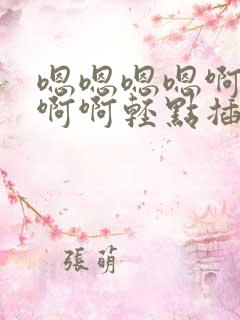 嗯嗯嗯嗯啊
啊啊輕點插
張萌